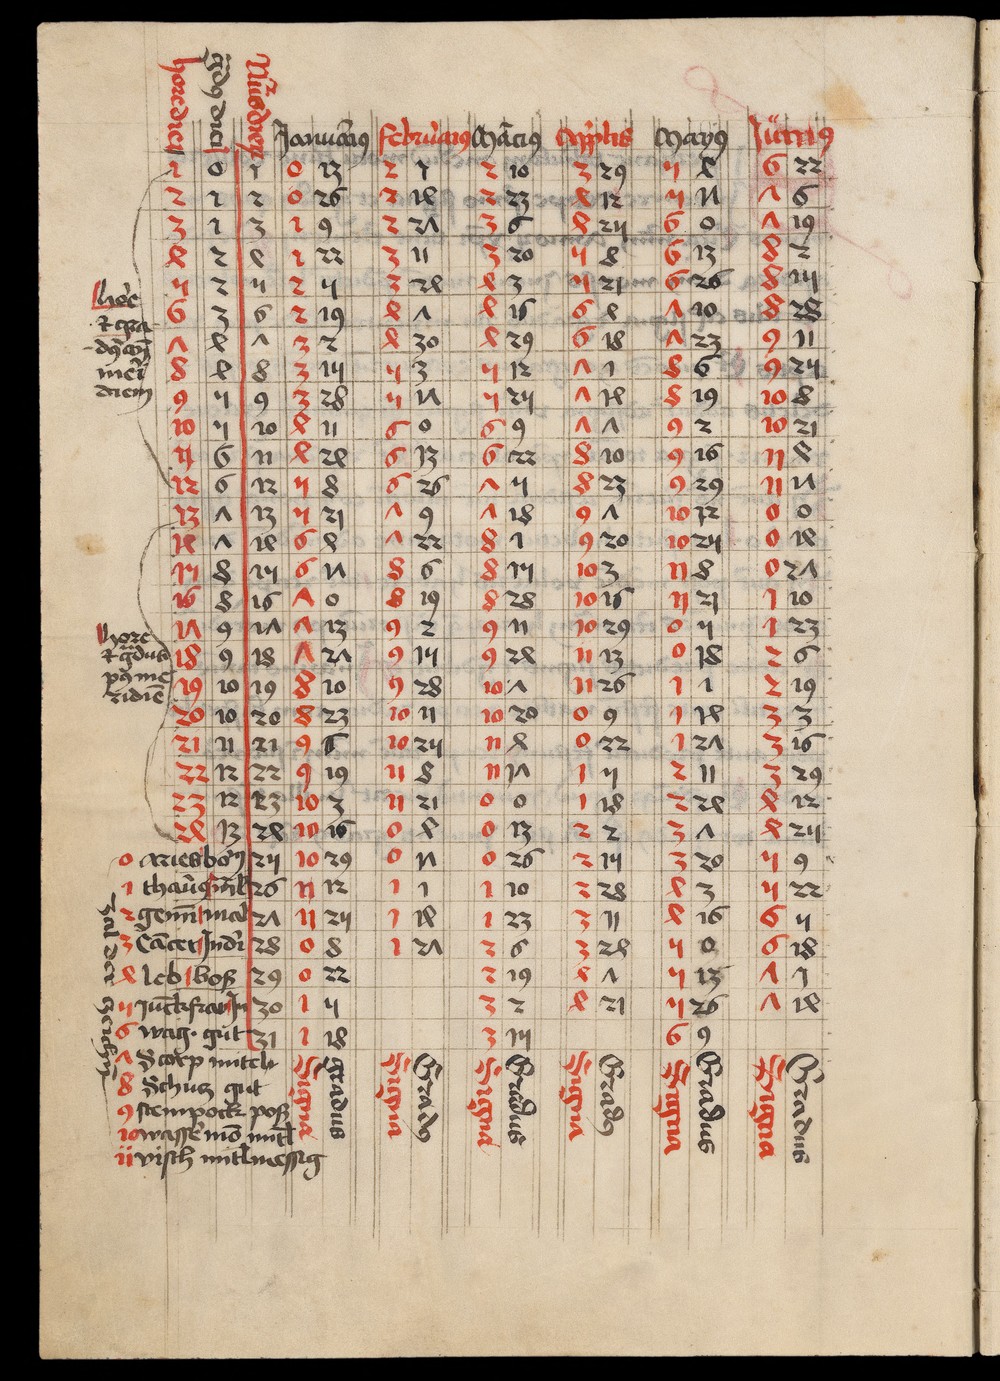 hore diei gradus diei Numerus dierum
Januarius februarius Marcius Aprilis Mayus Junius
1 0 1 0 13 2 1 2 10 3 29 5 4 6 22
2 1 2 0 26 2 14 2 23 4 12 5 17 7 6
3 1 3 1 9 2 27 3 6 4 25 6 0 7 19
4 2 4 1 22 3 11 3 20 5 8 6 13 8 2
5 2 5 2 5 3 24 4 3 5 21 6 26 8 15
6 3 6 2 19 4 7 4 16 6 4 7 10 8 28
7 4 7 3 2 4 30 4 29 6 18 7 23 9 11
8 4 8 3 15 5 3 5 12 7 1 8 6 9 25
9 5 9 3 28 5 17 5 25 7 14 8 19 10 8
10 5 10 4 11 6 0 6 9 7 7 9 2 10 21
11 6 11 4 24 6 13 6 22 8 10 9 16 11 4
12 6 12 5 8 6 26 7 5 8 23 9 29 11 17
13 7 13 5 21 7 9 7 18 9 7 10 12 0 0
14 7 14 6 4 7 22 8 1 9 20 10 25 0 14
15 8 15 6 17 8 6 8 15 10 3 11 8 0 27
16 8 16 7 0 8 19 8 28 10 16 11 21 1 10
17 9 17 7 13 9 2 9 11 10 29 0 5 1 23
18 9 18 7 27 9 15 9 24 11 13 0 18 2 6
19 10 19 8 10 9 28 10 7 11 26 1 1 2 19
20 10 20 8 23 10 11 10 20 0 9 1 14 3 3
21 11 21 9 6 10 25 11 4 0 22 1 27 3 16
22 12 22 9 19 11 8 11 17 1 5 2 11 3 29
23 12 23 10 3 11 21 0 0 1 18 2 24 4 12
24 13 24 10 16 0 4 0 13 2 2 3 7 4 25
25 10 29 0 17 0 26 2 15 3 20 5 9
26 11 12 1 1 1 10 2 28 4 3 5 22
27 11 25 1 14 1 23 3 11 4 16 6 5
28 0 8 1 27 2 6 3 24 5 0 6 18
29 0 22 2 19 4 7 5 13 7 1
30 1 5 3 2 4 21 5 26 7 14
31 1 18 3 15 6 9
Signa Gradus Signa Gradus Signa Gradus Signa Gradus Signa Gradus Signa Gradus
hore
diem
hore
0 Aries
1
2 gemini
3 Cancer
4 leb boß
5 Junckfraw
6 wag gut
7 Scorp mittel
8 Schuz gut
9 stempock poß
10
11 visch mitlmessig